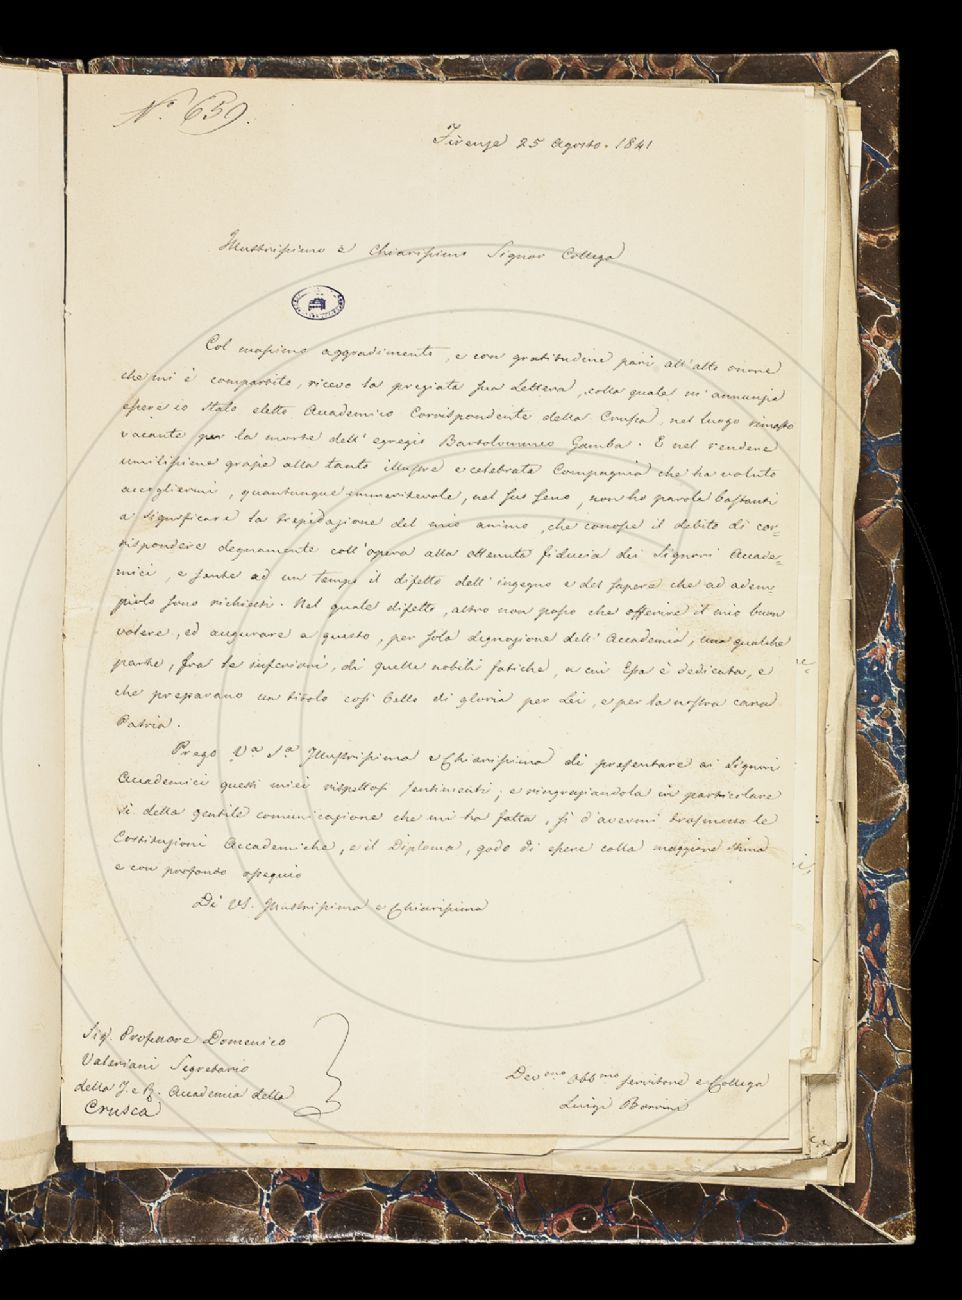 N.° 659.
Firenze 25 Agosto. 1841
Illustrissimo e Chiarissimo Signor Collega
Col massimo aggradimento, e con gratitudine pari all'alto onore
che mi è compartito, ricevo la pregiata sua Lettera, colla quale m'annunzia
essere io stato eletto Accademico Corrispondente della Crusca, nel luogo rimasto
vacante per la morte dell'egregio Bartolommeo Gamba. E nel rendere
umilissime grazie alla tanto illustre e celebrata Compagnia che ha voluto
accogliermi, quantunque immeritevole, nel suo seno, non ho parole bastanti
a significare la trepidazione del mio animo, che conosce il debito di cor=
rispondere degnamente coll'opera alla ottenuta fiducia dei Signori Accade=
mici, e sente ad un tempo il difetto dell'ingegno e del sapere che ad adem=
pirlo sono richiesti. Nel quale difetto, altro non posso che offerire il mio buon
volere, ed augurare a questo, per sola degnazione dell'Accademia, una qualche
parte, fra le inferiori, di quelle nobili fatiche, a cui Essa è dedicata, e
che preparano un titolo così bello di gloria per Lei, e per la nostra cara
Patria.
Prego V.a S.a Illustrissima e Chiarissima di presentare ai Signori
Accademici questi miei rispettosi sentimenti; e ringraziandola in particolare
sì della gentile comunicazione che mi ha fatta, sì d'avermi trasmesso le
Costituzioni Accademiche, e il Diploma, godo di essere colla maggiore stima
e con profondo ossequio
Di VS. Illustrissima e Chiarissima
Sig. Professore Domenico
Valeriani Segretario
della I. e R. Accademia della
Crusca
Dev.mo Obb.mo servitore e Collega
Luigi